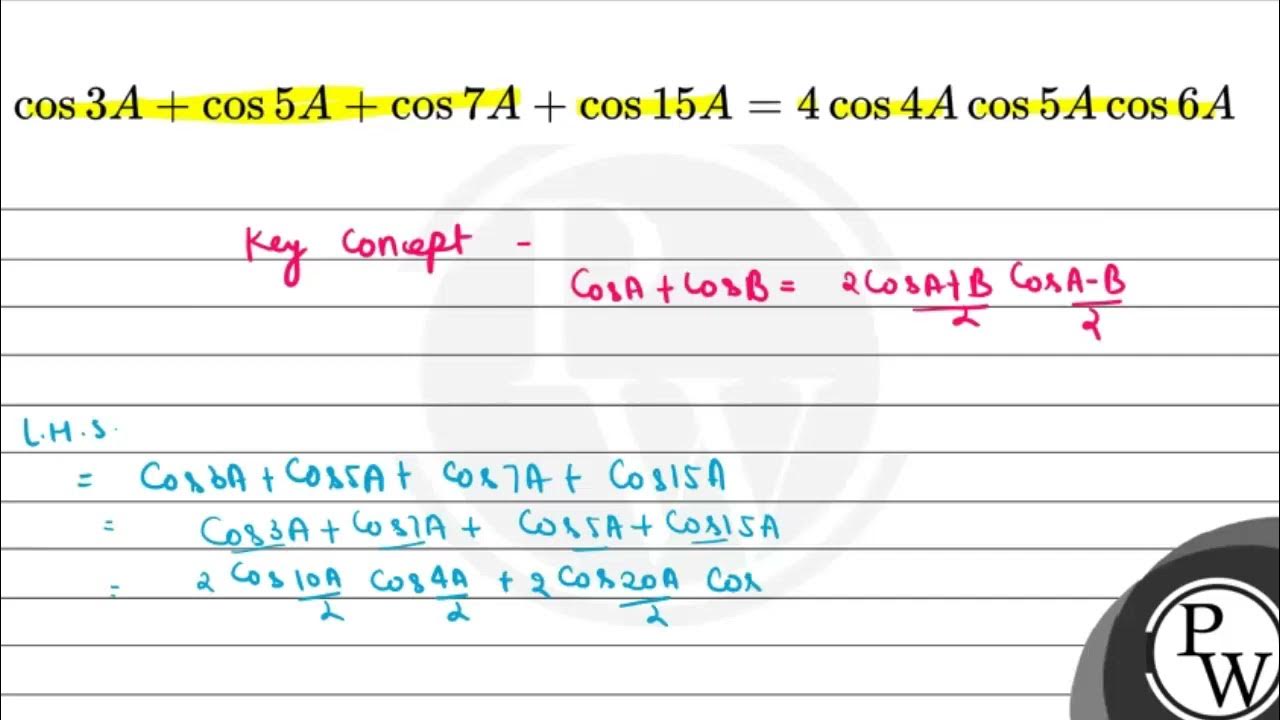 cos 3A + cos 5A + cos 7A + cos 15A = 4 cos 4A cos 5A cos 6A
Key Concept -
CosA + CosB = 2CosA+B/2 CosA-B/2
L.H.S.
= Cos3A + Cos5A + Cos7A + Cos15A
= Cos3A + Cos7A + Cos5A + Cos15A
= 2 Cos10A/2 Cos4A/2 + 2 Cos20A/2 Cos
PW
PW